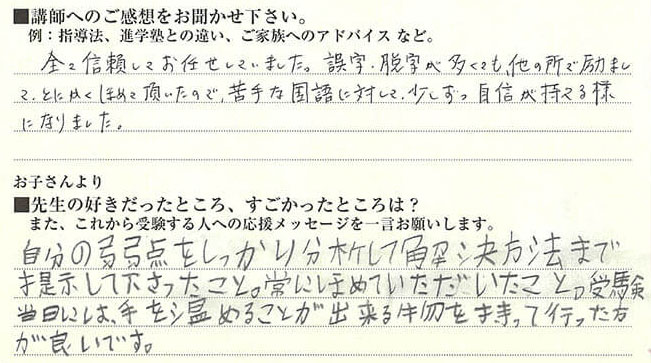 ■講師へのご感想をお聞かせ下さい。
例：指導法、進学塾との違い、ご家族へのアドバイス など。
全て信頼してお任せしていました。誤字・脱字が多くても、他の所で励まし
て、とにかくほめて頂いたので、苦手な国語に対して、少しずつ自信が持てる様
になりました。
お子さんより
■先生の好きだったところ、すごかったところは？
また、これから受験する人への応援メッセージを一言お願いします。
自分の弱弱点をしっかり分析して解決方法まで
提示して下さったこと。常にほめていただいたこと。受験
当日には、手を温めることが出来る物を持って行った方
が良いです。